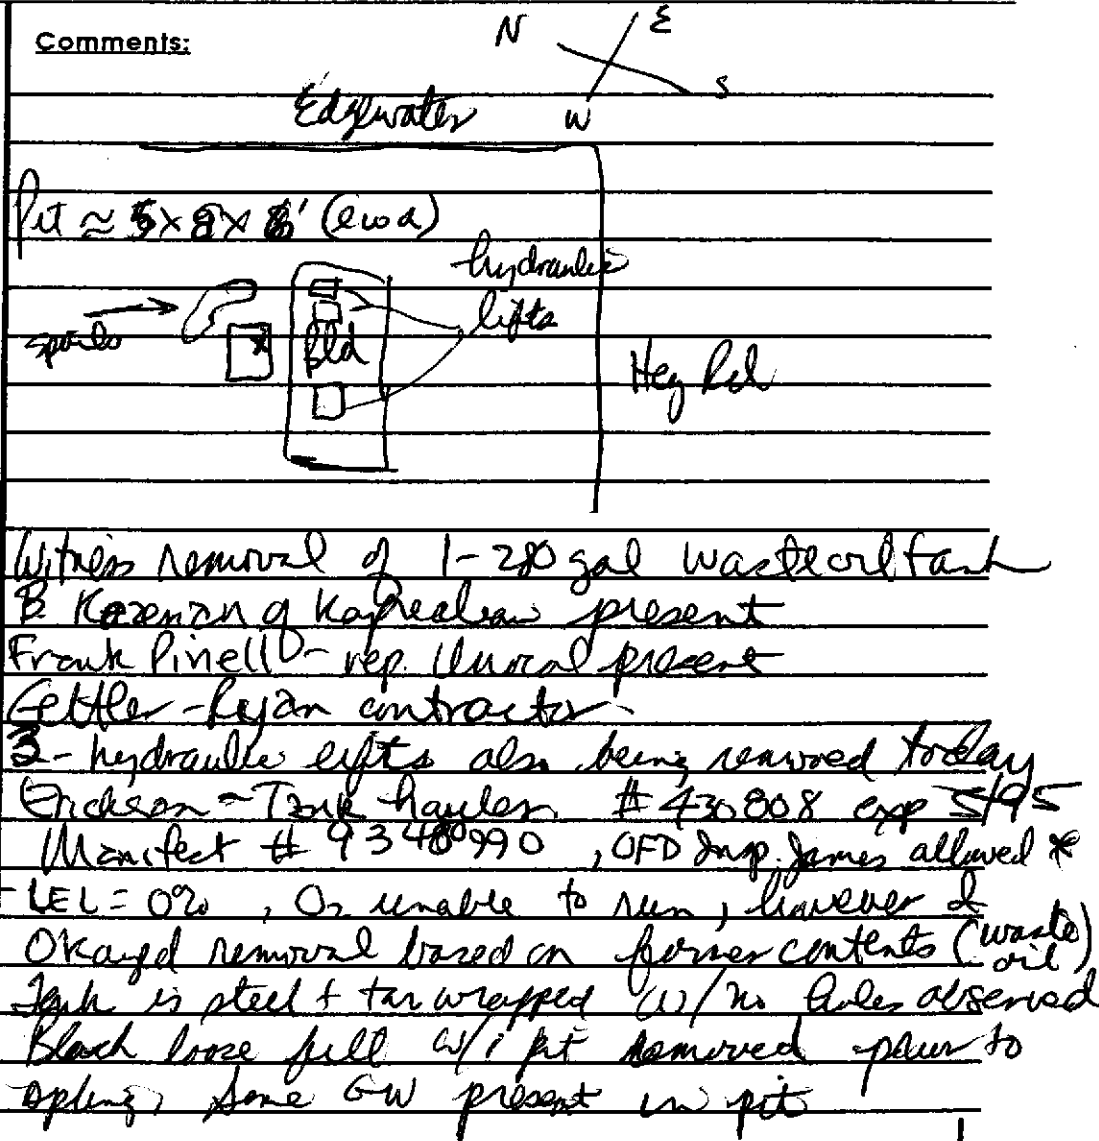 Comments:
N E
S
W
Edgewater
Pit ≈ 5 x 8 x 8'
hydraulic
lifts
spoils
x
Bld
Heg Rd
Witness removal of 1-280 gal waste oil tank
B of present
Frank Pinell - rep. Unocal present
Gettler-Ryan contractor
3- hydraulic lifts also being removed today
Erickson - Tank hauler # 430808 exp 5/95
Manifest # 93480990, OFD Insp. James allowed *
- LEL = 0%, O2 unable to run, however I
Okayed removal based on former contents (waste oil)
Tank is steel + tar wrapped w/ no holes observed
Black loose fill w/i pit removed prior to
spling, some GW present in pit